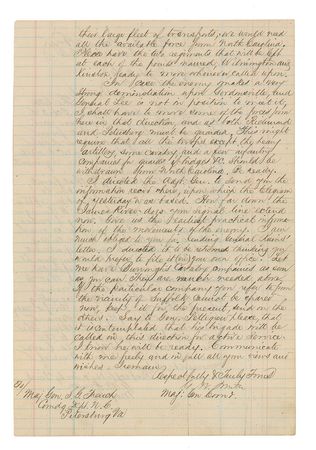 their large fleet of transports, we would need
all the available force from North Carolina.
Please have the two regiments that will be left
at each of the points named, Wilmington and
Kinston ready to move whenever called upon.
In case the enemy makes a very
strong demonstration upon Gordonsville, and
General Lee is not in position to meet it,
I shall have to move some of the force from
here in that direction, and as both Richmond
and Petersburg must be guarded, this might
require that all the troops except the heavy
artillery, some cavalry and a few infantry
companies for guards of bridges &c should be
withdrawn from North Carolina, be ready.
I directed the Asst. Gen. to send you the
information recd. here, upon which the telegram
of yesterday was based. How far down the
James River does your signal line extend
now. Give us the earliest practical information
of the movements of the enemy. I am
much obliged to you for sending General
letter. I directed it to be returned thinking you
would prefer to file it in your own office. Let
me have Cavalry companies as soon
as you can. They are much needed above.
If the particular company you refer to from
the vicinity of Suffolk cannot be spared
now, keep it for the present, and send the
others. Say to Gen. Pettigrew I hear, that
it is contemplated that his brigade will be
called in, this direction for active service.
I know he will be ready. Communicate
with me freely and in full all your views and
wishes. I remain,
Respectfully & Truly Yours
G. W. Smith
Maj. Gen. Comd.
Maj. Gen. S. G. French
Comdg. Dept. N. C.
Petersburg Va